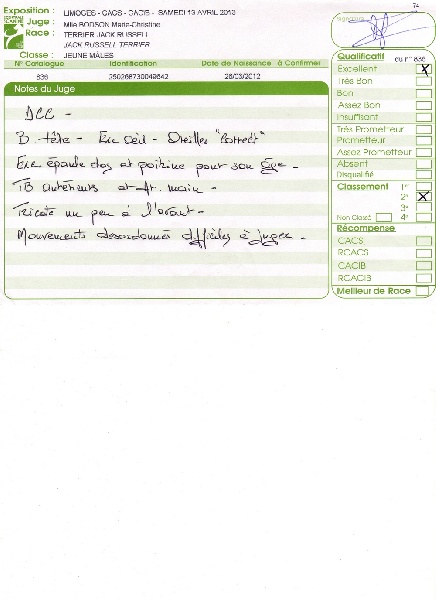 74
Exposition : LIMOGES - CACS - CACIB - SAMEDI 13 AVRIL 2013
Juge : Mlle BODSON Marie-Christine
Race : TERRIER JACK RUSSELL
JACK RUSSELL TERRIER
Classe : JEUNE MÂLES
N° Catalogue Identification Date de Naissance à Confirmer
836 250268730049642 26/03/2012
Notes du Juge
B. tête - Exc œil - Oreilles "correct"
Exc épaule dos et poitrine pour son âge -
TB antérieurs et Ar. main -
Tricote un peu à l'avant -
Mouvements désordonnés difficiles à juger -
Signature
Qualificatif du n° 836
Excellent X
Très Bon
Bon
Assez Bon
Insuffisant
Très Prometteur
Prometteur
Assez Prometteur
Absent
Disqualifié
Classement 1er
2e X
3e
Non Classé 4e
Récompense
CACS
RCACS
CACIB
RCACIB
Meilleur de Race